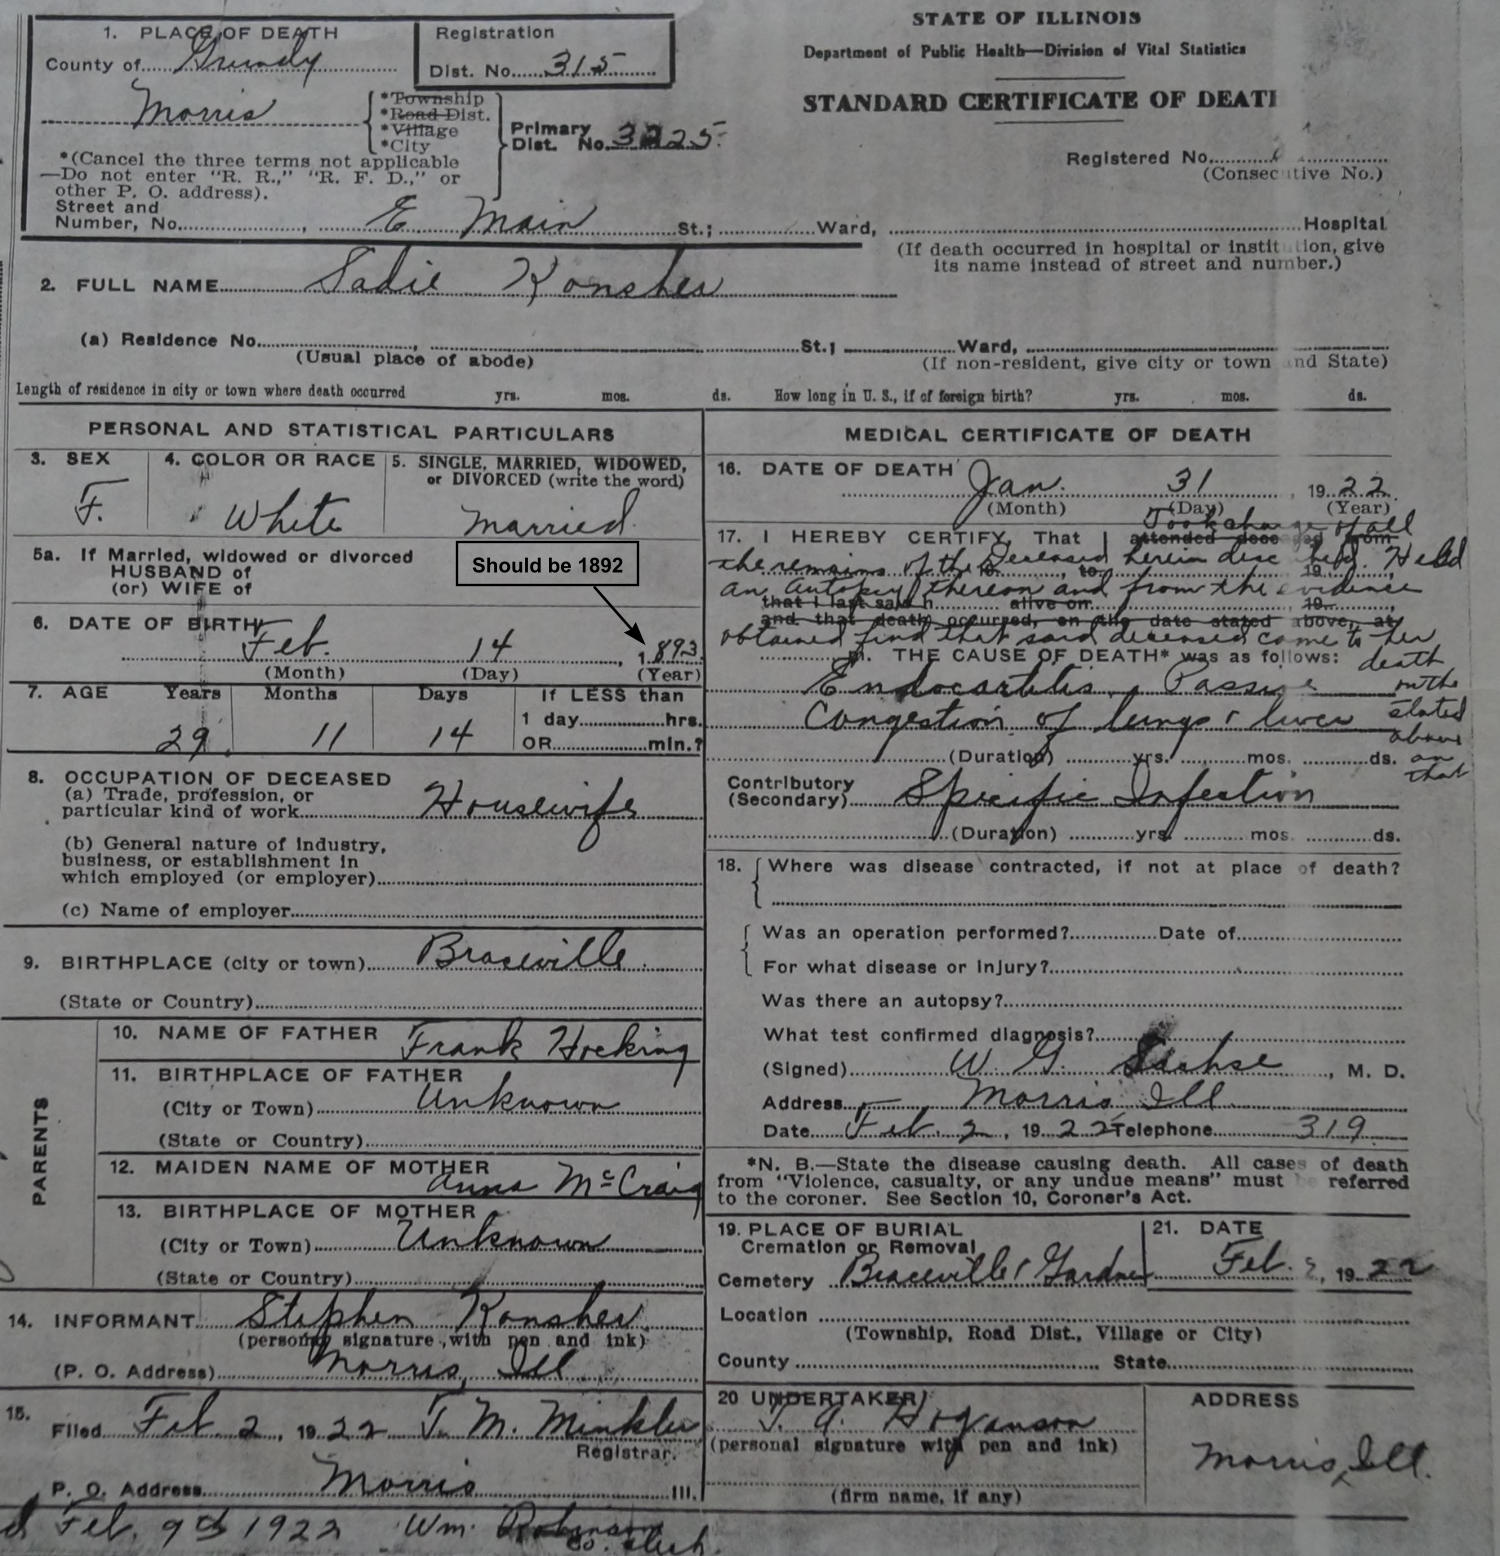 STATE OF ILLINOIS
Department of Public Health—Division of Vital Statistics
STANDARD CERTIFICATE OF DEAT
1. PLACE OF DEATH
County of Grundy
Registration
Dist. No. 315
Morris
*Township
*Road Dist.
*Village
*City
Primary
Dist. No. 3225
*(Cancel the three terms not applicable
—Do not enter "R. R.," "R. F. D.," or
other P. O. address).
Registered No.
(Consecutive No.)
Street and
Number, No. , E Main St.; Ward, Hospital
(If death occurred in hospital or institution, give
its name instead of street and number.)
2. FULL NAME Sadie Konsher
(a) Residence No. , St.; Ward,
(Usual place of abode) (If non-resident, give city or town and State)
Length of residence in city or town where death occurred yrs. mos. ds. How long in U. S., if of foreign birth? yrs. mos. ds.
PERSONAL AND STATISTICAL PARTICULARS
3. SEX
F.
4. COLOR OR RACE
White
5. SINGLE, MARRIED, WIDOWED,
or DIVORCED (write the word)
Married
5a. If Married, widowed or divorced
HUSBAND of
(or) WIFE of
Should be 1892
6. DATE OF BIRTH
Feb. 14 , 1893
(Month) (Day) (Year)
7. AGE Years Months Days If LESS than
1 day hrs.
29 11 14 OR min.?
8. OCCUPATION OF DECEASED
(a) Trade, profession, or
particular kind of work Housewife
(b) General nature of industry,
business, or establishment in
which employed (or employer)
(c) Name of employer
9. BIRTHPLACE (city or town) Braceville
(State or Country)
PARENTS
10. NAME OF FATHER Frank Hocking
11. BIRTHPLACE OF FATHER
(City or Town) Unknown
(State or Country)
12. MAIDEN NAME OF MOTHER
Anna McCraig
13. BIRTHPLACE OF MOTHER
(City or Town) Unknown
(State or Country)
14. INFORMANT Stephen Konsher
(personal signature with pen and ink)
(P. O. Address) Morris, Ill
15.
Filed Feb 2, 1922 T. M. Minkler
Registrar.
P. O. Address Morris Ill.
Feb. 9th 1922 Wm. Robinson
Co. Clerk.
MEDICAL CERTIFICATE OF DEATH
16. DATE OF DEATH
Jan. 31 , 1922
(Month) (Day) (Year)
Took charge of all
17. I HEREBY CERTIFY, That I attended deceased from
the remains of the Deceased herein described. Held
19 , to 19 ,
an Autopsy thereon and from the evidence
that I last saw h alive on , 19 ,
and that death occurred, on the date stated above, at
obtained find that said deceased came to her
m. THE CAUSE OF DEATH* was as follows: death
Endocartitis, Passive on the
Congestion of lungs & liver stated
above
(Duration) yrs. mos. ds. on
that
Contributory
(Secondary) Specific Infection
(Duration) yrs. mos. ds.
18. Where was disease contracted, if not at place of death?
Was an operation performed? Date of
For what disease or injury?
Was there an autopsy?
What test confirmed diagnosis?
(Signed) W. G. Sachse , M. D.
Address Morris Ill.
Date Feb. 2 , 1922 Telephone 319
*N. B.—State the disease causing death. All cases of death
from "Violence, casualty, or any undue means" must be referred
to the coroner. See Section 10, Coroner's Act.
19. PLACE OF BURIAL
Cremation or Removal
Cemetery Braceville, Gardner
21. DATE
Feb. 2, 1922
Location
(Township, Road Dist., Village or City)
County State
20 UNDERTAKER
T. A. Hoganson
(personal signature with pen and ink)
(firm name, if any)
ADDRESS
Morris, Ill.